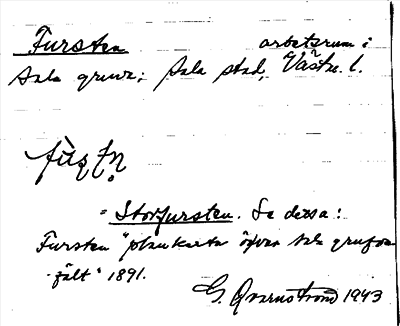 Fursten arbetsrum i
Sala gruva; Sala stad, Västm. l.
"Storfursten. Se dessa:
Fursten "plankarta öfver Sala grufve
fält" 1891.
G. Qvarnström 1943